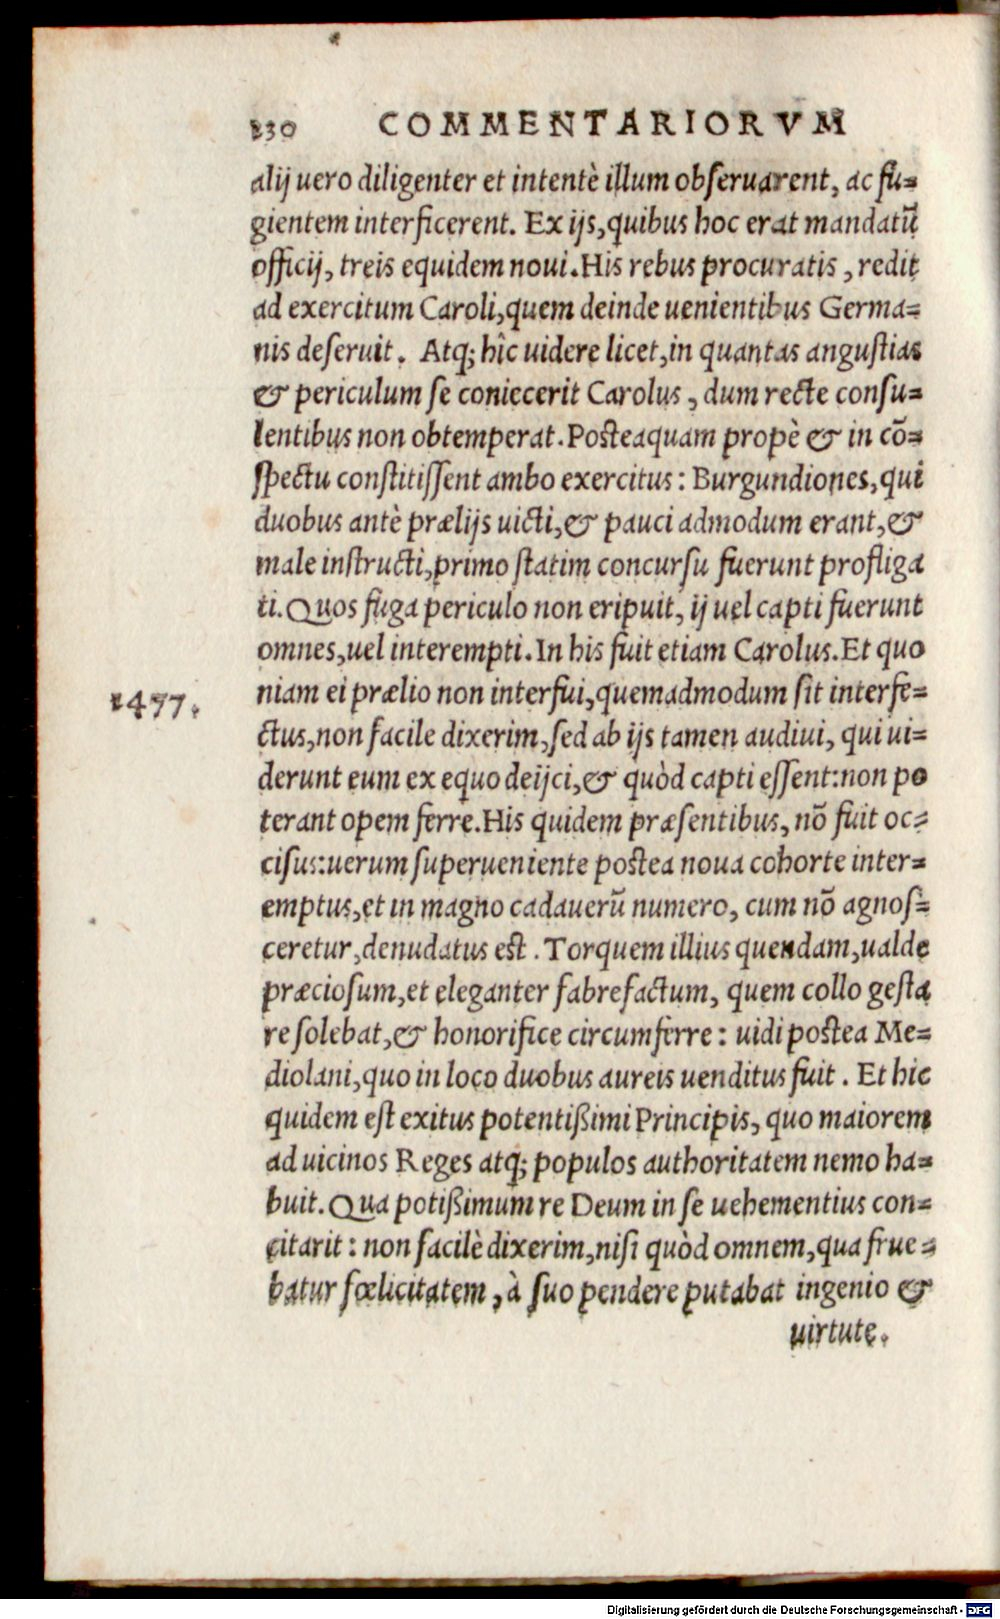 130 COMMENTARIORVM
alij uero diligenter et intentè illum obseruarent, ac fu=
gientem interficerent. Ex ijs, quibus hoc erat mandatũ
officij, treis equidem noui. His rebus procuratis, redit
ad exercitum Caroli, quem deinde uenientibus Germa=
nis deseruit. Atq; hîc uidere licet, in quantas angustias
& periculum se coniecerit Carolus, dum recte consu=
lentibus non obtemperat. Posteaquam propè & in cõ=
spectu constitissent ambo exercitus: Burgundiones, qui
duobus antè prælijs uicti, & pauci admodum erant, &
male instructi, primo statim concursu fuerunt profliga
ti. Quos fuga periculo non eripuit, ij uel capti fuerunt
omnes, uel interempti. In his fuit etiam Carolus. Et quo
1477. niam ei prælio non interfui, quemadmodum sit interfe=
ctus, non facile dixerim, sed ab ijs tamen audiui, qui ui=
derunt eum ex equo deijci, & quòd capti essent: non po
terant opem ferre. His quidem præsentibus, nõ fuit oc=
cisus: uerum superueniente postea noua cohorte inter=
emptus, et in magno cadauerũ numero, cum nõ agnos=
ceretur, denudatus est. Torquem illius quendam, ualde
præciosum, et eleganter fabrefactum, quem collo gesta
re solebat, & honorifice circumferre: uidi postea Me=
diolani, quo in loco duobus aureis uenditus fuit. Et hic
quidem est exitus potentißimi Principis, quo maiorem
ad uicinos Reges atq; populos authoritatem nemo ha=
buit. Qua potißimum re Deum in se uehementius con=
citarit: non facilè dixerim, nisi quòd omnem, qua frue=
batur fœlicitatem, à suo pendere putabat ingenio &
uirtute.
Digitalisierung gefördert durch die Deutsche Forschungsgemeinschaft - DFG